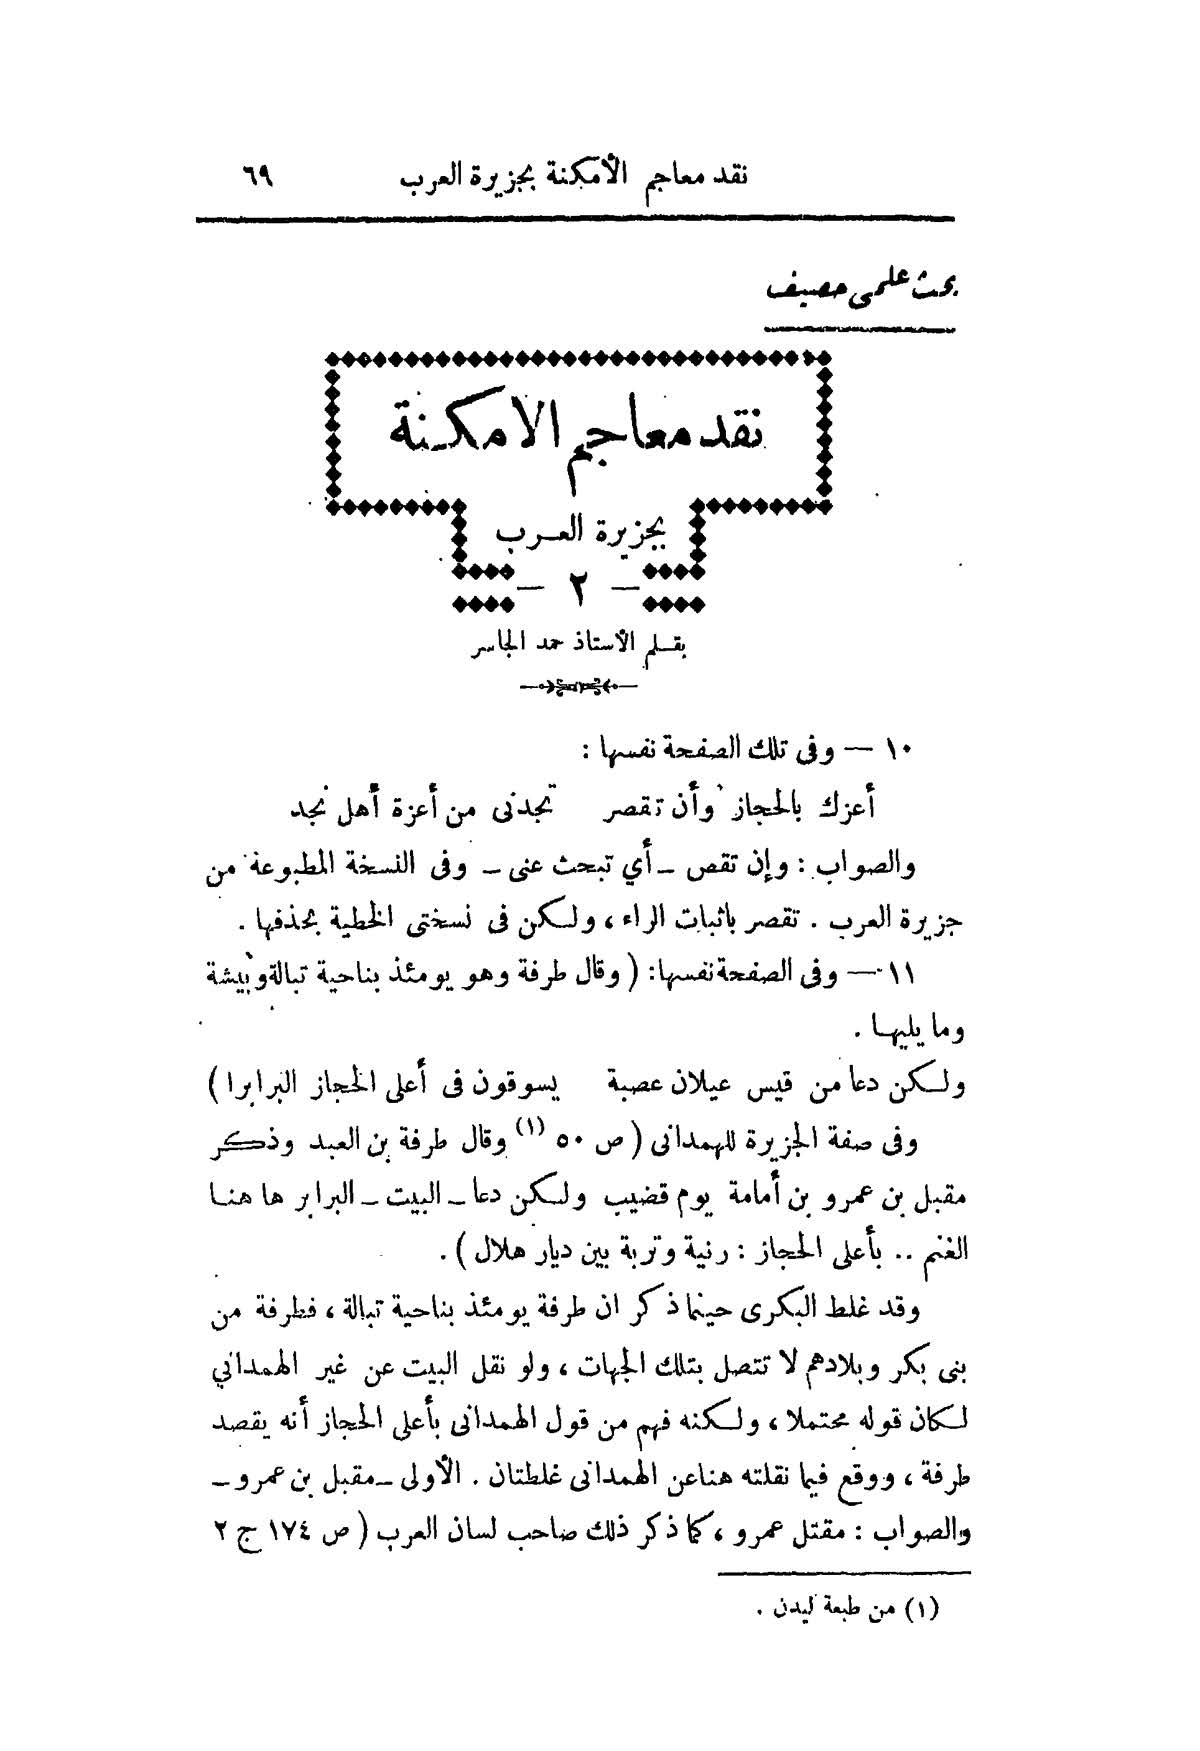 نقد معاجم الأمكنة بجزيرة العرب ٦٩
بحث علمي حصيف
نقد معاجم الامكنة
بجزيرة العرب
— ٢ —
بقلم الأستاذ حمد الجاسر
١٠ — وفى تلك الصفحة نفسها :
أعزك بالحجاز وأن تقصر تجدنى من أعزة أهل نجد
والصواب : وإن تقص ـ أي تبحث عنى ـ وفى النسخة المطبوعة من
جزيرة العرب . تقصر باثبات الراء ، ولكن فى نسختى الخطية بحذفها .
١١ — وفى الصفحة نفسها : ( وقال طرفة وهو يومئذ بناحية تبالة وبيشة
وما يليها .
ولكن دعا من قيس عيلان عصبة يسوقون فى أعلى الحجاز البرابرا )
وفى صفة الجزيرة للهمدانى ( ص ٥٠ (١) وقال طرفة بن العبد وذكر
مقبل بن عمرو بن أمامة يوم قضيب ولكن دعا ـ البيت ـ البرابر ها هنا
الغنم .. بأعلى الحجاز : رنية وتربة بين ديار هلال ) .
وقد غلط البكرى حينما ذكر ان طرفة يومئذ بناحية تبالة ، فطرفة من
بنى بكر وبلادهم لا تتصل بتلك الجهات ، ولو نقل البيت عن غير الهمداني
لكان قوله محتملا ، ولكنه فهم من قول الهمدانى بأعلى الحجاز أنه يقصد
طرفة ، ووقع فيما نقلته هنا عن الهمدانى غلطتان . الأولى ـ مقبل بن عمرو ـ
والصواب : مقتل عمرو ، كما ذكر ذلك صاحب لسان العرب ( ص ١٧٤ ج ٢
(١) من طبعة ليدن .